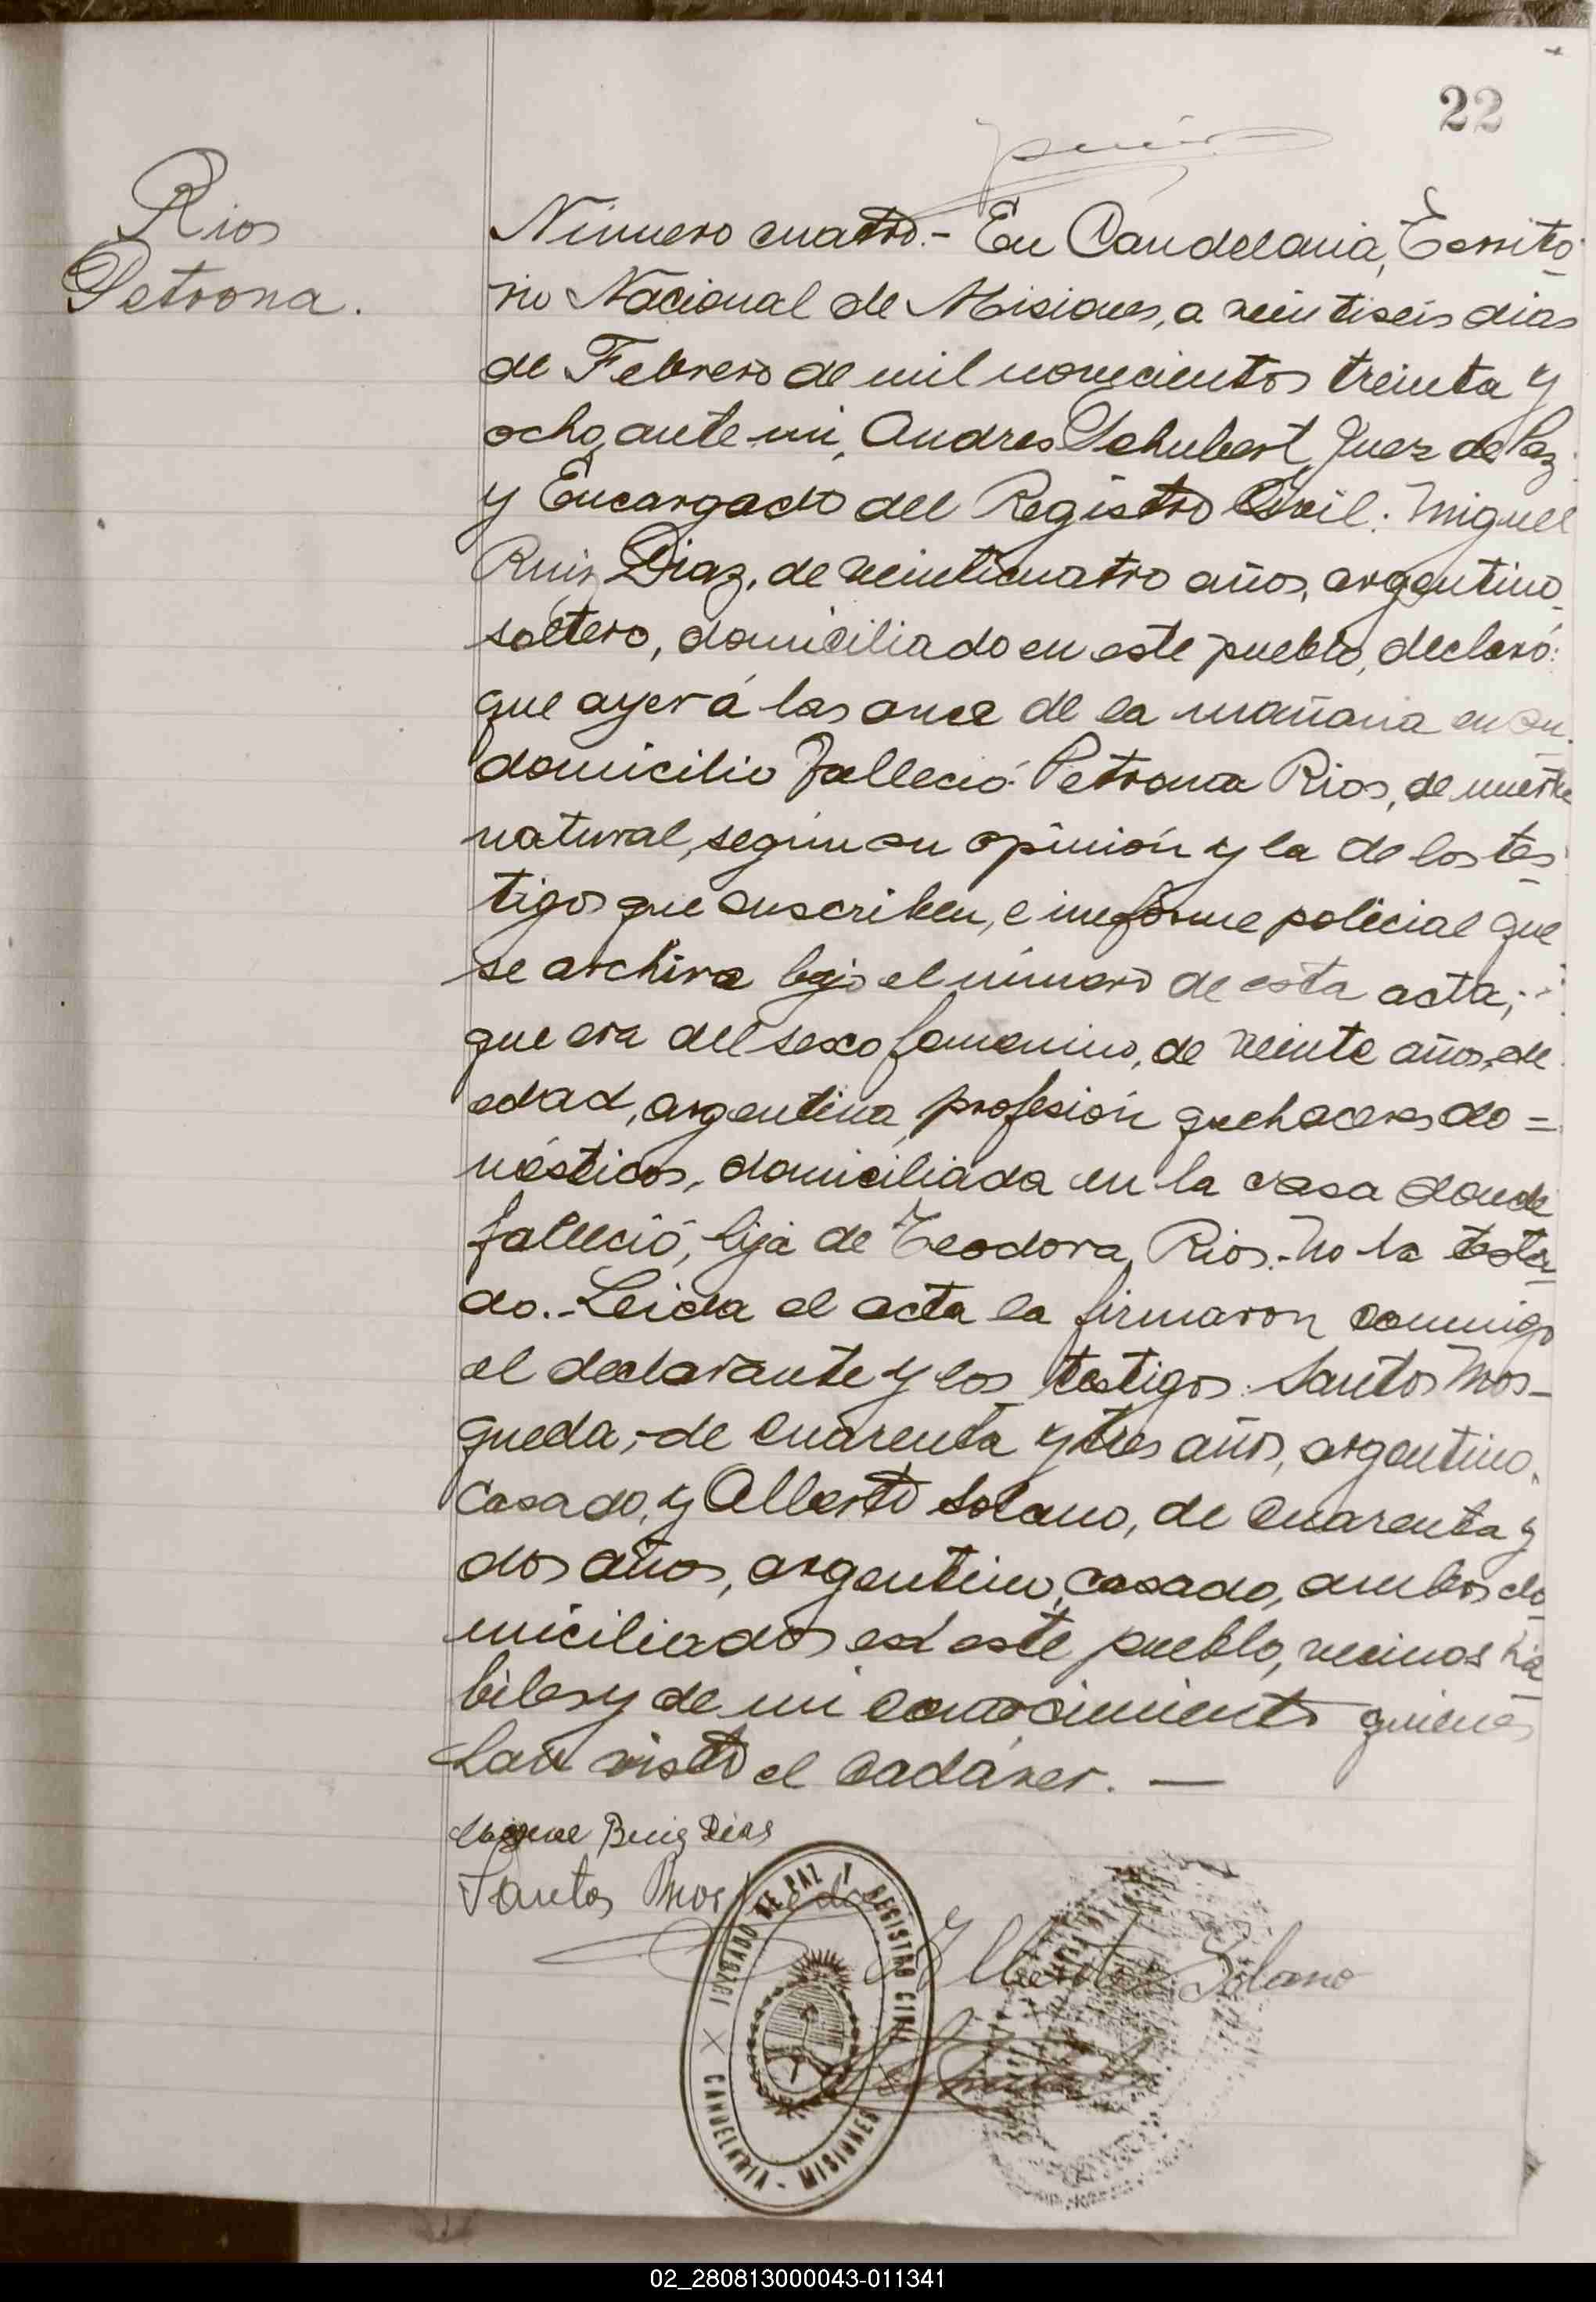 22
Rios
Petrona.
Número cuatro.- En Candelaria, Territo-
rio Nacional de Misiones, a veintiseis dias
de Febrero de mil novecientos treinta y
ocho, ante mi, Andres Schubert, Juez de Paz
y Encargado del Registro Civil: Miguel
Ruiz Diaz, de veinticuatro años, argentino,
soltero, domiciliado en este pueblo, declaró:
que ayer á las once de la mañana en su
domicilio falleció Petrona Rios, de muerte
natural, según su opinión y la de los tes-
tigos que suscriben, e informe policial que
se archiva bajo el número de esta acta;
que era del sexo femenino, de veinte años de
edad, argentina, profesión quehaceres do=
mésticos, domiciliada en la casa donde
falleció, hija de Teodora Rios.- No ha testa-
do.- Leida el acta la firmaron conmigo
el declarante y los testigos: Santos Mos-
queda, de cuarenta y tres años, argentino,
casado, y Alberto Solano, de cuarenta y
dos años, argentino, casado, ambos do-
miciliados en este pueblo, vecinos há-
biles y de mi conocimiento quienes
han visto el cadáver. —
Miguel Ruiz Dias
Santos Mosqueda
Alberto Solano
JUZGADO DE PAZ Y REGISTRO CIVIL
CANDELARIA - MISIONES
02_280813000043-011341